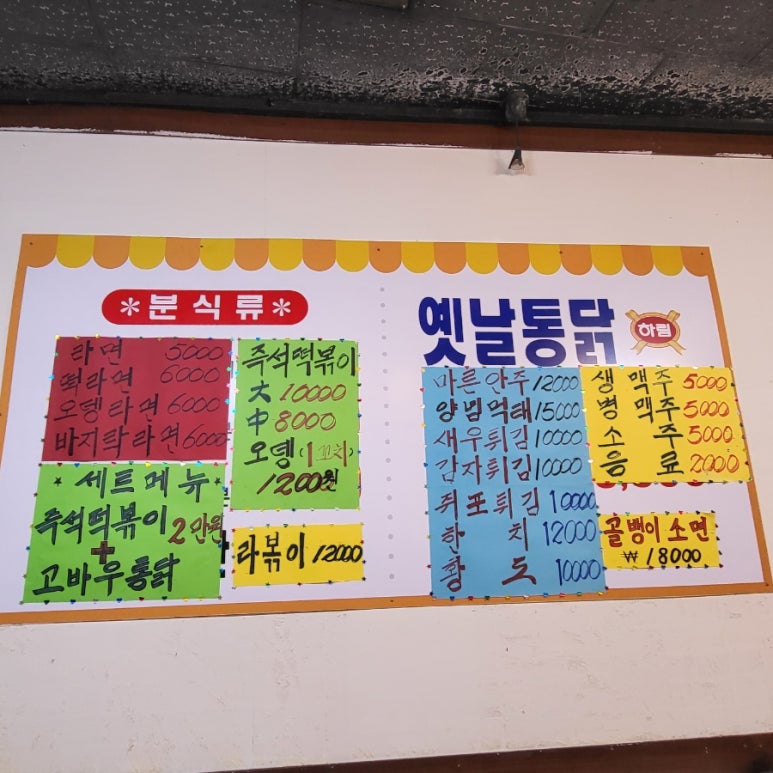 *분식류*
라면 5000
떡라면 6000
오뎅라면 6000
바지락라면 6000
즉석떡볶이
大 10000
中 8000
오뎅(1꼬치)
1200원
★세트메뉴★
즉석떡볶이 2만원
+
고바우통닭
라볶이 12000
옛날통닭
하림
마른안주 12000
양념먹태 15000
새우튀김 10000
감자튀김 10000
쥐포튀김 10000
한치 12000
황도 10000
생맥주 5000
병맥주 5000
소주 5000
음료 2000
골뱅이소면
₩18000